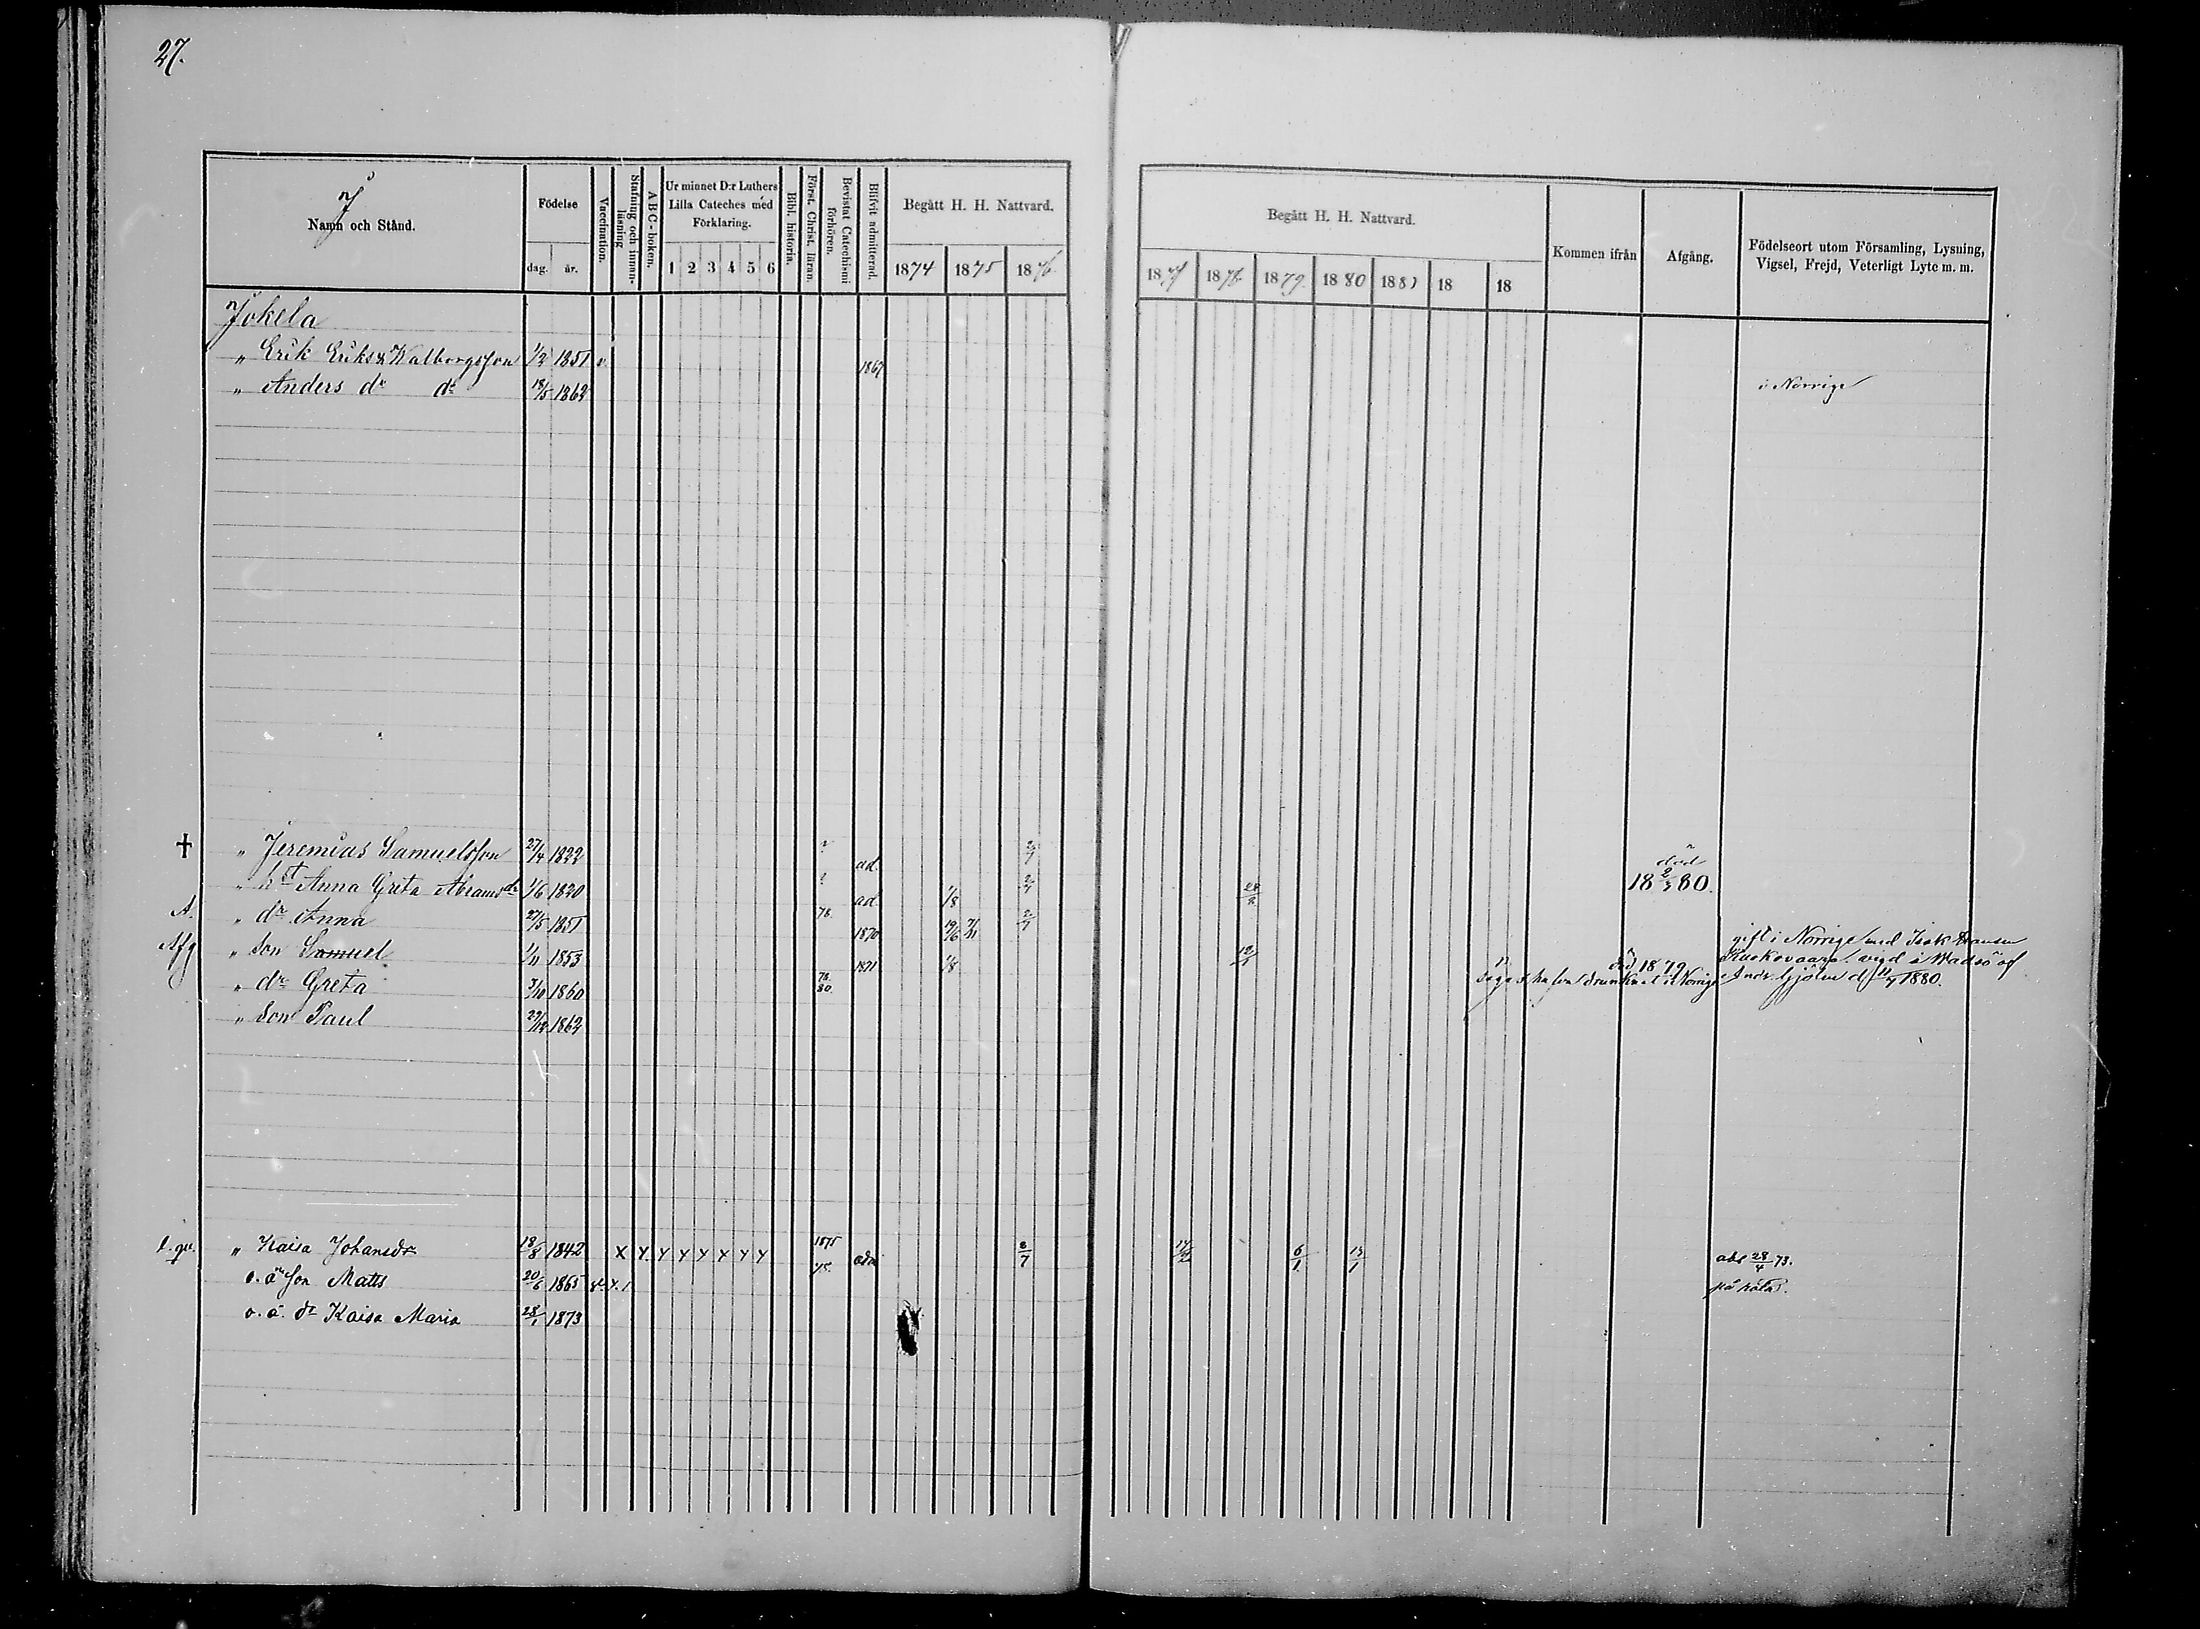 27.
Namn och Stånd.
Födelse
dag. år.
Vaccination.
Stafning och innan-
läsning
A B C - boken.
Ur minnet D:r Luthers
Lilla Cateches med
Förklaring.
1 2 3 4 5 6
Bibl. historia.
Först. Christ. läran.
Bevistat Catechismi
förhören.
Blifvit admitterad.
Begått H. H. Nattvard.
1874 1875 1876.
Begått H. H. Nattvard.
18 1878 1879. 1880 1881 18 18
Kommen ifrån
Afgång.
Födelseort utom Församling, Lysning,
Vigsel, Frejd, Veterligt Lyte m. m.
Jokela
" Erik Eriks & Walborgsson 1/2 1851 v. 1867
" Anders do do 18/5 1862 i Norrige
† " Jeremias Samuelsson 27/4 1822 ? ad. 2/7 död
" Anna Greta Abramsdr 1/6 1820 ? ad. 1/8 2/7 18 80.
A. " dr Anna 27/5 1851 78. 1870 2/7
Afg " Son Samuel 1/11 1853 1871 1/8 12/1 gift i Norrige med Isak
" dr Greta 3/10 1860 78. 80. död 1879 i Norrige 11/7 1880.
" Son Paul 29/12 1862
" Kaisa Johansdr 18/8 1842 x y y y y x y y 1875 adm 2/7 6/1 13/1 abs 28/4 73.
o. ä. son Matts 20/6 1865
o. ä. dr Kaisa Maria 28/1 1873